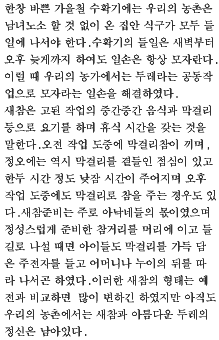 한창 바쁜 가을철 수확기에는 우리의 농촌은
남녀노소 할 것 없이 온 집안 식구가 모두 들
일에 나서야 한다.수확기의 들일은 새벽부터
오후 늦게까지 하여도 일손은 항상 모자란다.
이럴 때 우리의 농가에서는 두레라는 공동작
업으로 모자라는 일손을 해결하였다.
새참은 고된 작업의 중간중간 음식과 막걸리
등으로 요기를 하며 휴식 시간을 갖는 것을
말한다.오전 작업 도중에 막걸리참이 끼며,
정오에는 역시 막걸리를 곁들인 점심이 있고
한두 시간 정도 낮잠 시간이 주어지며 오후
작업 도중에도 막걸리로 참을 주는 경우도 있
다.새참준비는 주로 아낙네들의 몫이였으며
정성스럽게 준비한 참거리를 머리에 이고 들
길로 나설 때면 아이들도 막걸리를 가득 담
은 주전자를 들고 어머니나 누이의 뒤를 따
라 나서곤 하였다.이러한 새참의 형태는 예
전과 비교하면 많이 변하긴 하였지만 아직도
우리의 농촌에서는 새참과 아름다운 두레의
정신은 남아있다.